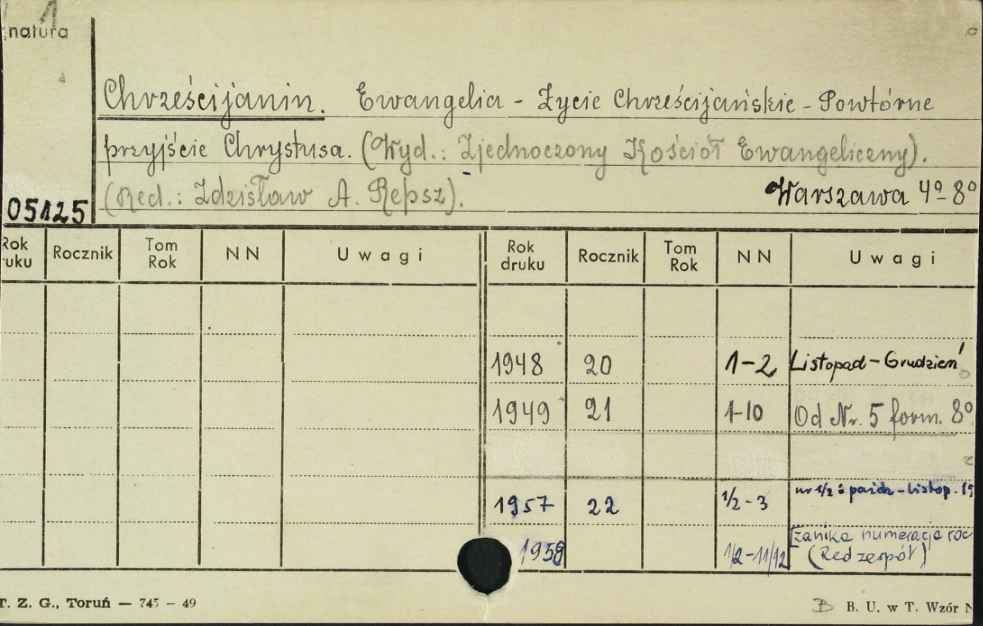 1
natura
Chrześcijanin. Ewangelia - Życie Chrześcijańskie - Powtórne
przyjście Chrystusa. (Wyd.: Zjednoczony Kościół Ewangeliczny).
(Red.: Zdzisław A. Repsz). Warszawa 4º-8º
05125
Rok druku Rocznik Tom Rok NN Uwagi Rok druku Rocznik Tom Rok NN Uwagi
1948 20 1-2 Listopad-Grudzień
1949 21 1-10 Od Nr. 5 form. 8º
1957 22 1/2-3 nr 1/2 = paźdz-listop.
1959 1/2-11/12 [zanika numeracja roc
(Red zespół)
T. Z. G., Toruń — 745 - 49 B. U. w T. Wzór N